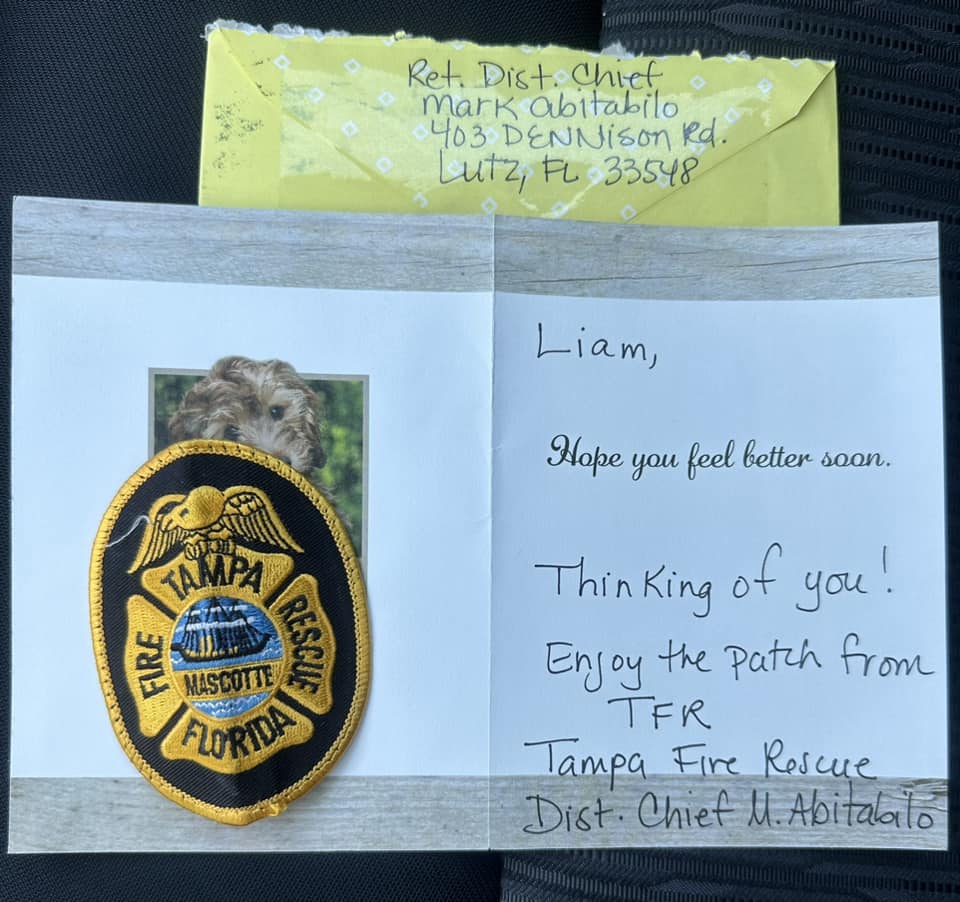 Ret. Dist. Chief
Mark Abitabilo
403 DENNison Rd.
Lutz, FL 33548
Liam,
Hope you feel better soon.
Thinking of you!
Enjoy the patch from
TFR
Tampa Fire Rescue
Dist. Chief M. Abitabilo
TAMPA
FIRE
RESCUE
MASCOTTE
FLORIDA